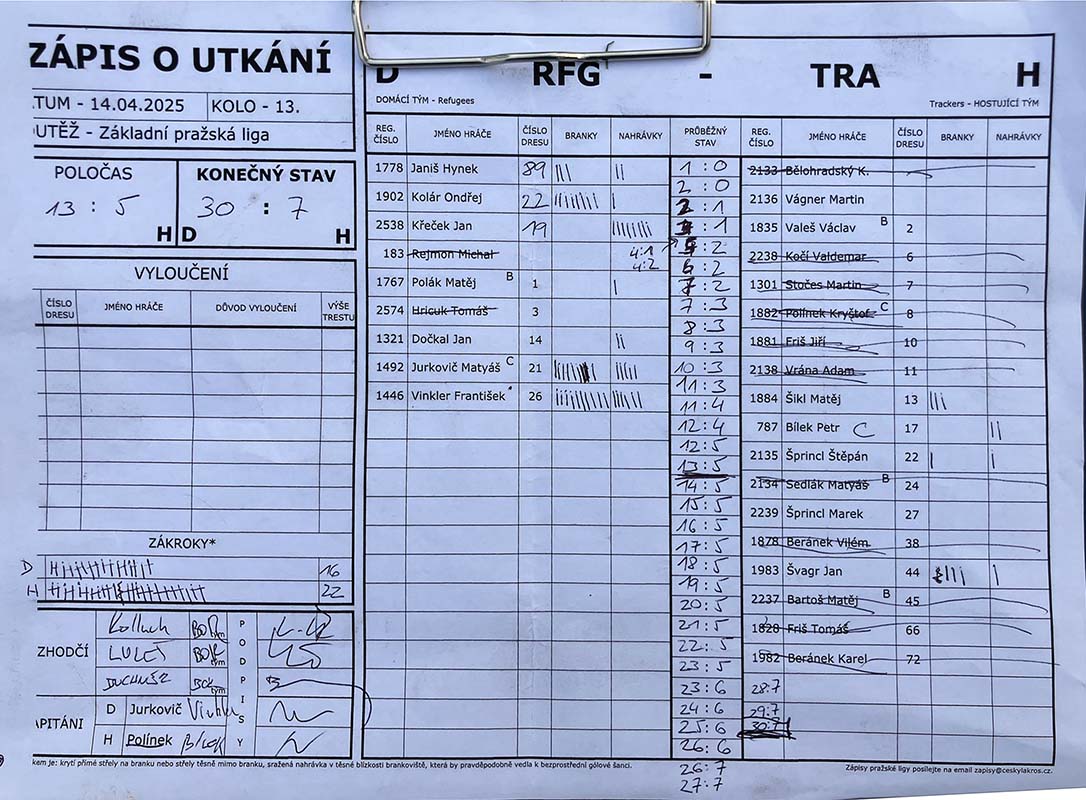 ZÁPIS O UTKÁNÍ
TUM - 14.04.2025 KOLO - 13.
OUTĚŽ - Základní pražská liga
POLOČAS KONEČNÝ STAV
13 : 5 30 : 7
H D H
VYLOUČENÍ
ČÍSLO DRESU JMÉNO HRÁČE DŮVOD VYLOUČENÍ VÝŠE TRESTU
ZÁKROKY*
D 16
H 22
ZHODČÍ
LULEŠ
PODPISY
APITÁNI D Jurkovič
H Polínek Bílek
D RFG - TRA H
DOMÁCÍ TÝM - Refugees Trackers - HOSTUJÍCÍ TÝM
REG. ČÍSLO JMÉNO HRÁČE ČÍSLO DRESU BRANKY NAHRÁVKY PRŮBĚŽNÝ STAV REG. ČÍSLO JMÉNO HRÁČE ČÍSLO DRESU BRANKY NAHRÁVKY
1778 Janiš Hynek 89
1902 Kolár Ondřej 22
2538 Křeček Jan 19
183 Rejmon Michal 4:1
4:2
1767 Polák Matěj B 1
2574 Hricuk Tomáš 3
1321 Dočkal Jan 14
1492 Jurkovič Matyáš C 21
1446 Vinkler František 26
1 : 0
2 : 0
2 : 1
: 1
5 : 2
6 : 2
7 : 2
7 : 3
8 : 3
9 : 3
10 : 3
11 : 3
11 : 4
12 : 4
12 : 5
13 : 5
14 : 5
15 : 5
16 : 5
17 : 5
18 : 5
19 : 5
20 : 5
21 : 5
22 : 5
23 : 5
23 : 6
24 : 6
25 : 6
26 : 6
26 : 7
27 : 7
2133 Bělohradský K.
2136 Vágner Martin
1835 Valeš Václav B 2
2238 Kočí Valdemar 6
1301 Stočes Martin 7
1882 Polínek Kryštof C 8
1881 Friš Jiří 10
2138 Vrána Adam 11
1884 Šikl Matěj 13
787 Bílek Petr C 17
2135 Šprincl Štěpán 22
2134 Sedlák Matyáš B 24
2239 Šprincl Marek 27
1878 Beránek Vilém 38
1983 Švagr Jan 44
2237 Bartoš Matěj B 45
1828 Friš Tomáš 66
1982 Beránek Karel 72
28:7
29:7
30:7
kem je: krytí přímé střely na branku nebo střely těsně mimo branku, sražená nahrávka v těsné blízkosti brankoviště, která by pravděpodobně vedla k bezprostřední gólové šanci.
Zápisy pražské ligy posílejte na email zapisy@ceskylakros.cz.